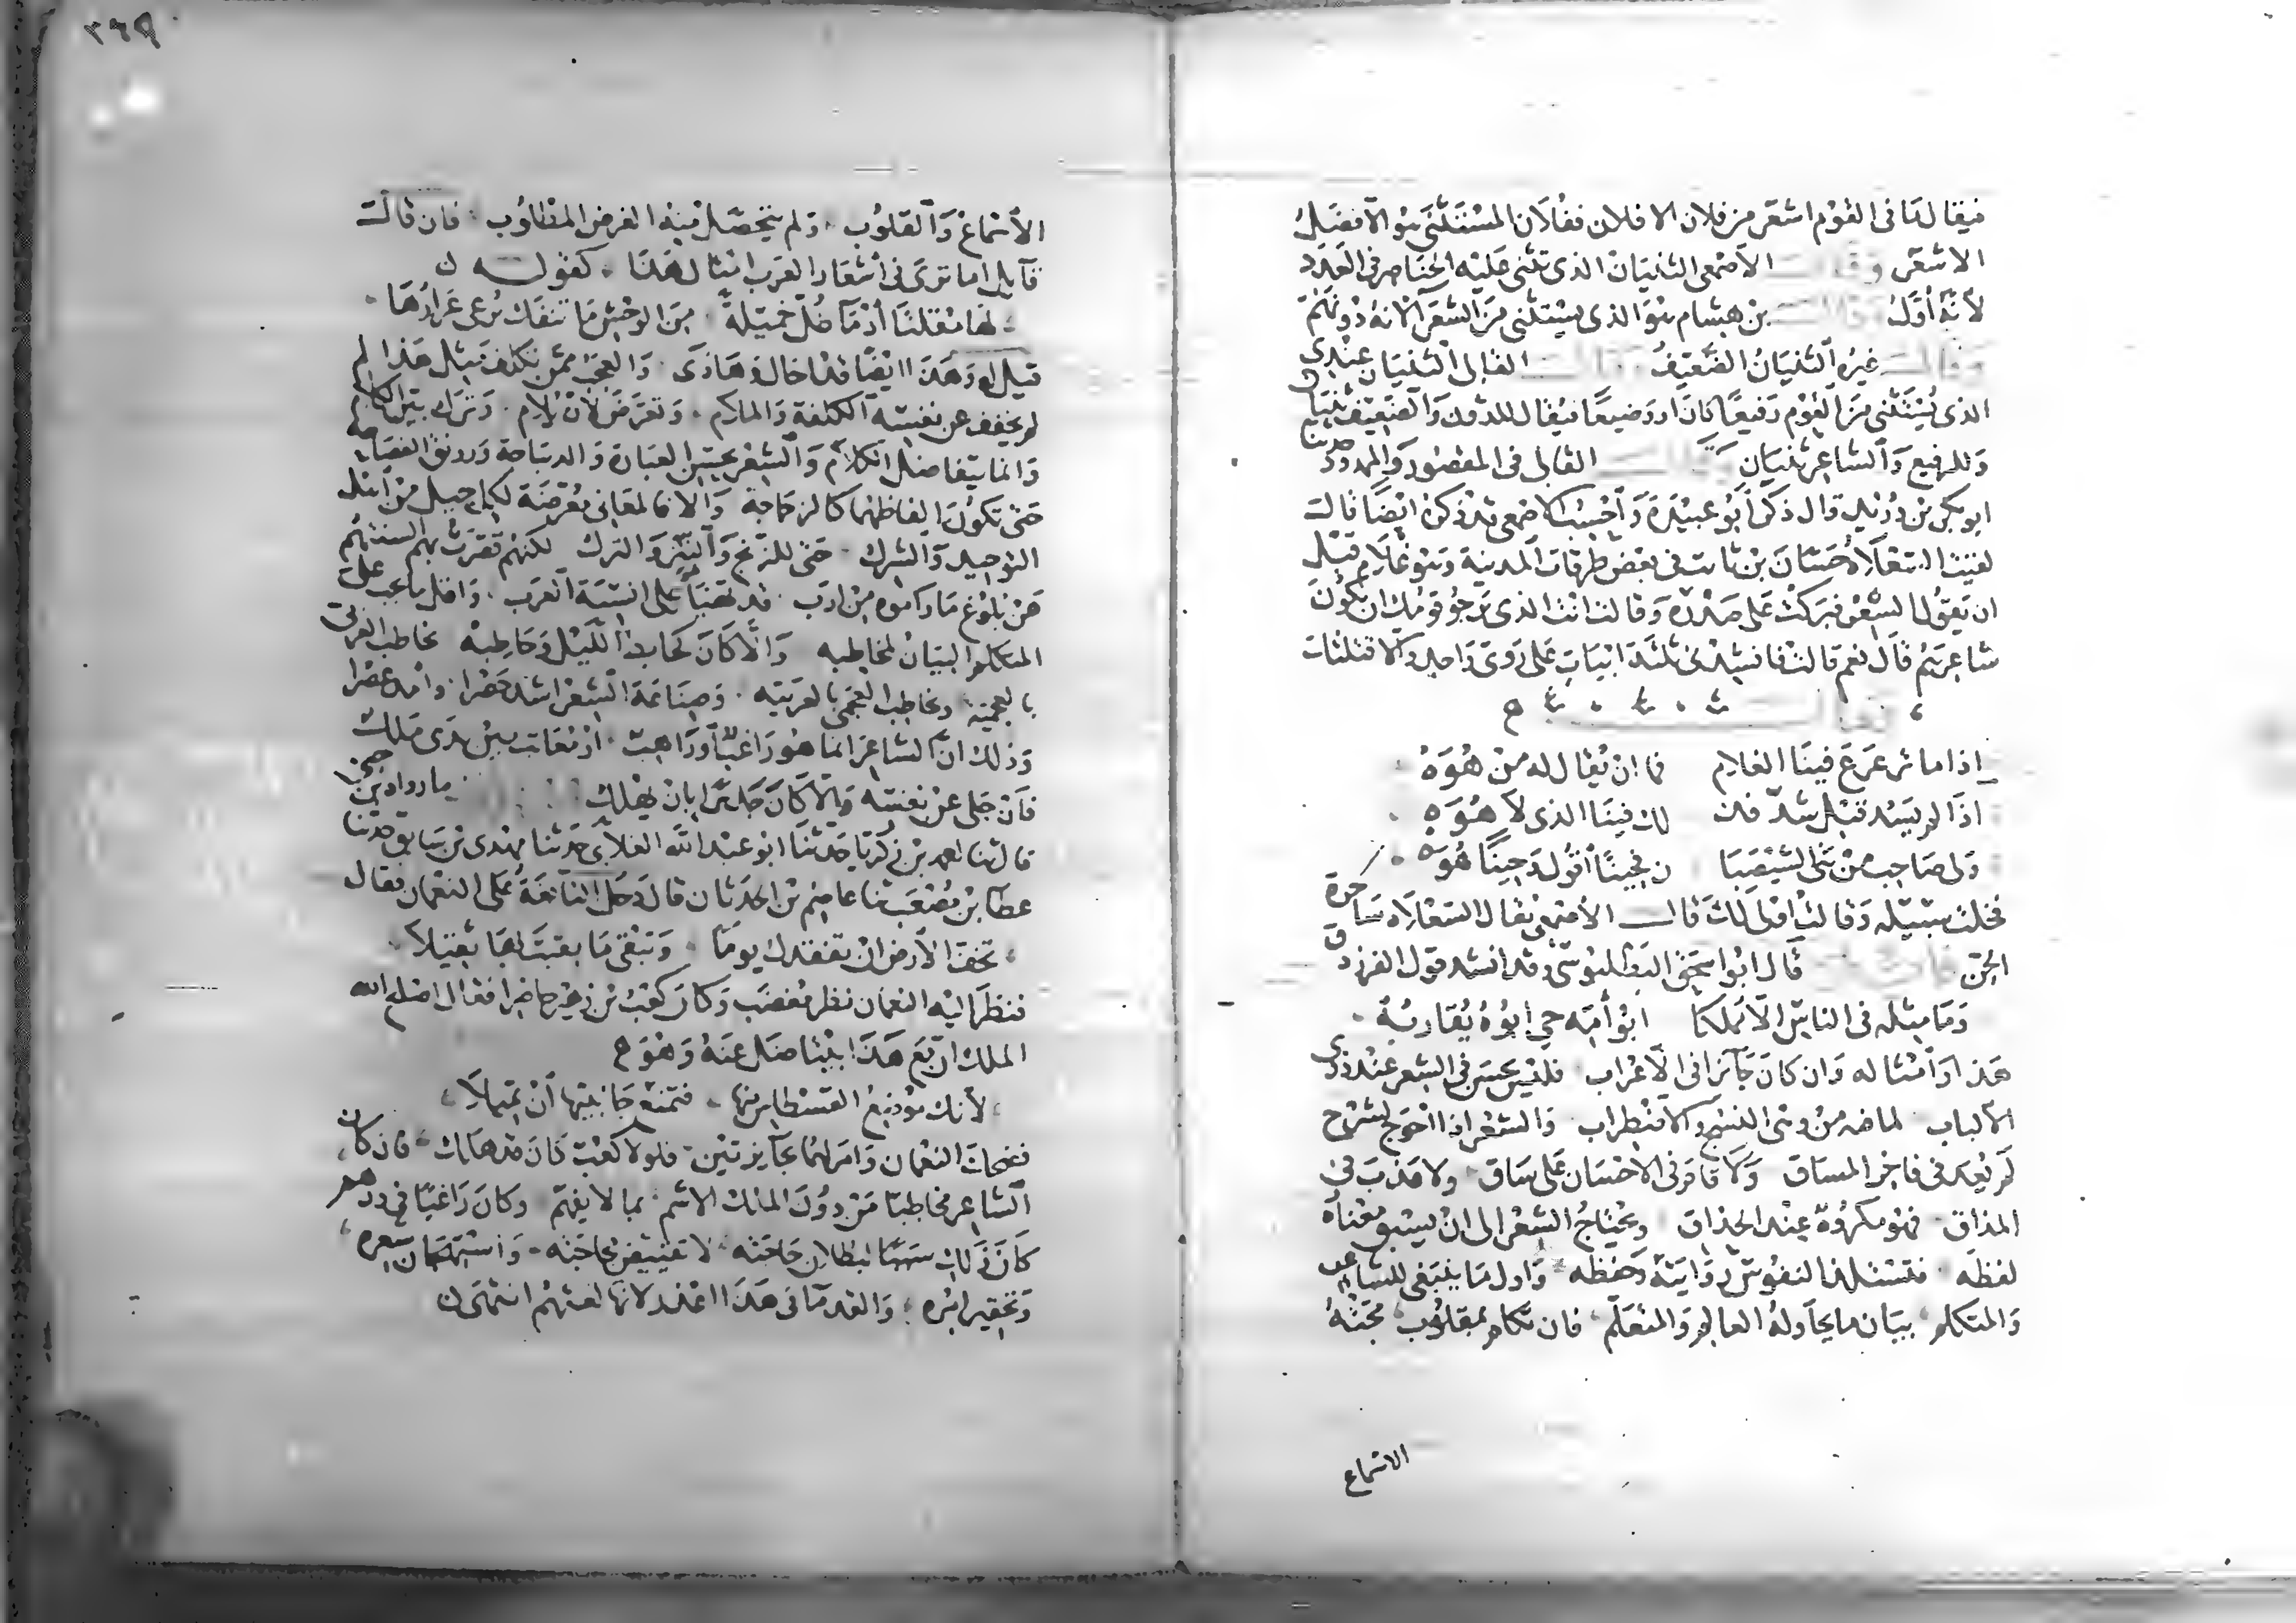 فيقال ما فى القوم اشعر من فلان الا فلان ففلان المستثنى هو الافضل
الاشعر وقال الاصمعى الثنيان الذى تثنى عليه الخناصر فى العدد
لانه اول وقال بن هشام هو الذى يستثنى من الشعرا لانه دونهم
وقال غيره الثنيان الضعيف وقال القالى الثنيان عندى
الذى يُستثنى من القوم رفيعا كان او وضيعا فيقال للدون والضعيف ثنيان
وللرفيع والشاعر ثنيان وقال القالى فى المقصور والممدود حدثنا
ابو بكر بن دريد قال ذكر ابو عبيدة واحسب الاصمعى قد ذكره ايضا قال
لقيت السعلاة حسان بن ثابت فى بعض طرقات المدينة وهو غلام قبل
ان يقول الشعر فبركت على صدره وقالت انت الذى يرجو قومك ان تكون
شاعرهم قال نعم قالت فانشدنى ثلثة ابيات على روى واحد والا قتلتك
فقال
اذا ما ترعرع فينا الغلام فما ان يقال له من هوه
اذا لم يسد قبل شد فذ لك فينا الذى لا هوه
ولى صاحب من بنى الشيصبا ن فحينا اقول وحينا هوه
فخلت سبيله وقالت اولى لك قال الاصمعى يقال السعلاة ساحرة
الجن قال ابو اسحق البطليوسى وقد انشد قول الفرزدق
وما مثله فى الناس الا مملكا ابو امه حى ابوه يقاربه
هذا وامثاله وان كان جائزا فى الاعراب فليس بحسن فى الشعر عند ذوى
الالباب لما فيه من وهى النسج والاضطراب والشعر اذا احوج لشرح
لم يعد فى فاخر المساق ولا قام فى الاحسان على ساق ولا عذب فى
المذاق فهو مكروه عند الحذاق ويحتاج الشعر الى ان يسبق معناه
لفظه فتستلذ النفوس روايته وحفظه واول ما ينبغى للشاعر
والمتكلم بيان ما يحاوله العالم والمتعلم فان تكلم بمقلوب مجته
الاسماع
٣٦٩
الاسماع والقلوب ولم يتحصل منه الغرض المطلوب فان قال
قايل اما ترى فى اشعار العرب امثال هذا كقوله
لها مقلتا ادما طل خميلة من الوحش ما تنفك ترعى عرارها
قيل له وهذا ايضا قد اخال وهاذى والعجب ممن تكلف مثل هذا لم
لم يخفف عن نفسه الكلفة والملام وتعرض لان يلام وترك بين الكلام
وانما يتفاضل الكلام والشعر بحسن العبارة والديباجة ورونق الفصاحة
حتى تكون الفاظهما كالزجاجة والا فالمعانى معرضة لكل جيل من اهل
التوحيد والشرك حتى للزنج والبربر والترك لكنهم قصرت بهم السنتهم
عن بلوغ ما راموه من ارب قد تهيا على السنة العرب واقل ما يجب على
المتكلم البيان لمخاطبه والا كان كخابط الليل وحاطبه يخاطب العربى
بالعجمية ويخاطب العجمى بالعربيه وصناعة الشعر اشد حصرا وامد عصرا
وذلك ان الشاعر انما هو راغب او راهب او معاتب بين يدى ملك
فان جلى عن نفسه والا كان جديرا بان يهلك ما رواه بن جنى
قال ثنا محمد بن زكريا حدثنا ابو عبد الله الغلابى حدثنا مهدى بن سابق حدثنا
عطا بن مصعب ثنا عاصم بن الحدثان قال دخل النابغة على النعمان فقال
تخف الارض ان تفقدك يوما وتبقى ما بقيت بها ثقيلا
فنظر اليه النعمان نظر مغضب وكان كعب بن زهير حاضرا فقال اصلح الله
الملك ان مع هذا بيتا ضل عنه وهو
لانك موضع القسطاس منها فتمنع جانبيها ان تميلا
فضحك النعمان وامر لهما بجايزتين فلولا كعب كان قد هلك فان كان
الشاعر مخاطبا من دون الملك الاشم بما لا يفهم وكان راغبا فى درهم
كان ذلك سببا لبطلان حاجته لا تغييض مجاجته واستهجان شعره
وتحقير امره والقدما فى هذا اعذر لانها لغتهم انتهى